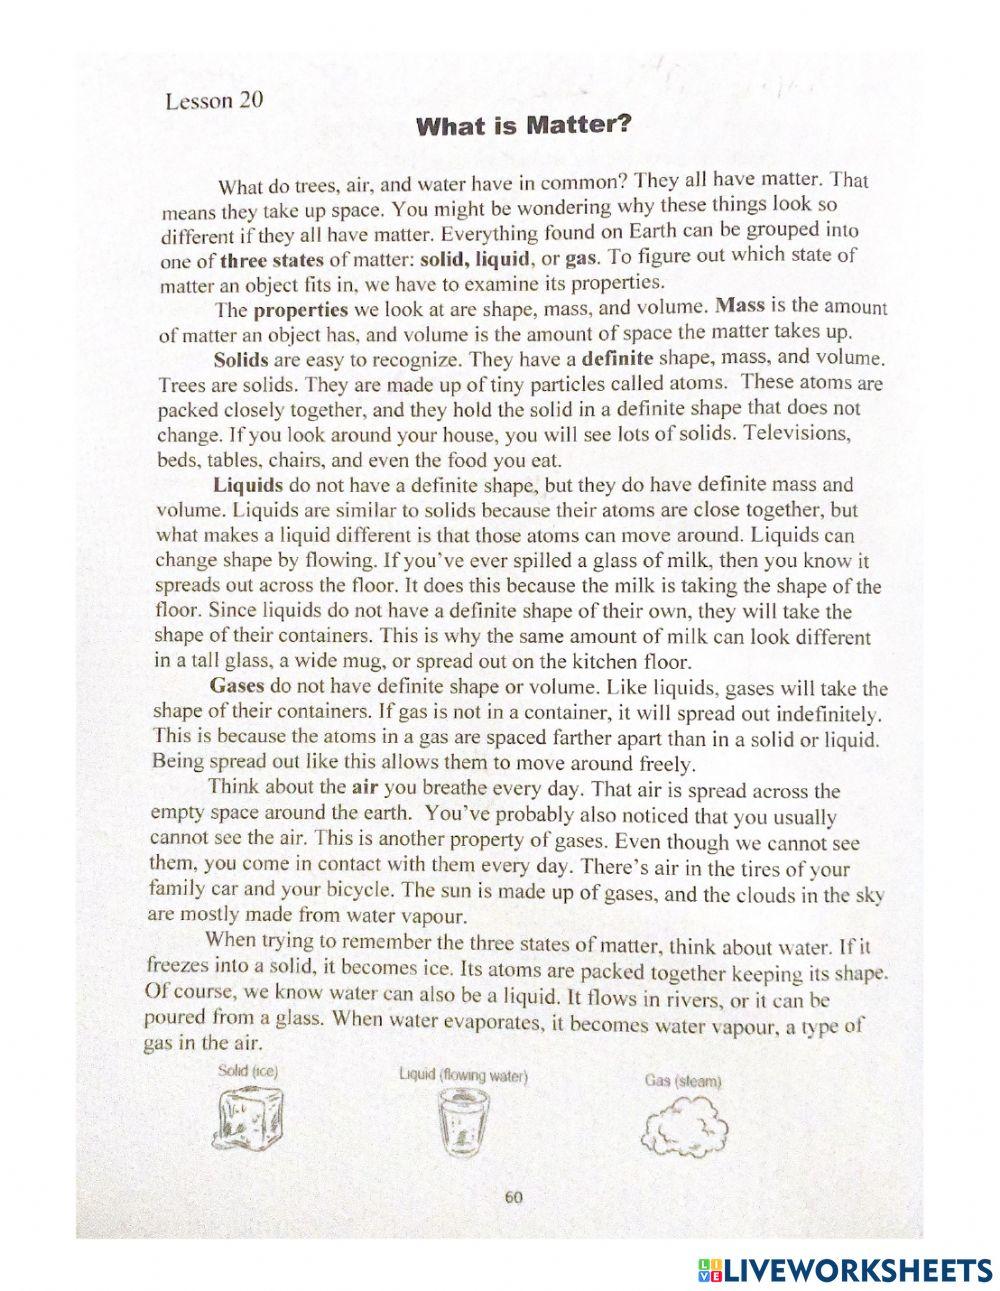 Lesson 20
What is Matter?
What do trees, air, and water have in common? They all have matter. That
means they take up space. You might be wondering why these things look so
different if they all have matter. Everything found on Earth can be grouped into
one of three states of matter: solid, liquid, or gas. To figure out which state of
matter an object fits in, we have to examine its properties.
The properties we look at are shape, mass, and volume. Mass is the amount
of matter an object has, and volume is the amount of space the matter takes up.
Solids are easy to recognize. They have a definite shape, mass, and volume.
Trees are solids. They are made up of tiny particles called atoms. These atoms are
packed closely together, and they hold the solid in a definite shape that does not
change. If you look around your house, you will see lots of solids. Televisions,
beds, tables, chairs, and even the food you eat.
Liquids do not have a definite shape, but they do have definite mass and
volume. Liquids are similar to solids because their atoms are close together, but
what makes a liquid different is that those atoms can move around. Liquids can
change shape by flowing. If you've ever spilled a glass of milk, then you know it
spreads out across the floor. It does this because the milk is taking the shape of the
floor. Since liquids do not have a definite shape of their own, they will take the
shape of their containers. This is why the same amount of milk can look different
in a tall glass, a wide mug, or spread out on the kitchen floor.
Gases do not have definite shape or volume. Like liquids, gases will take the
shape of their containers. If gas is not in a container, it will spread out indefinitely.
This is because the atoms in a gas are spaced farther apart than in a solid or liquid.
Being spread out like this allows them to move around freely.
Think about the air you breathe every day. That air is spread across the
empty space around the earth. You've probably also noticed that you usually
cannot see the air. This is another property of gases. Even though we cannot see
them, you come in contact with them every day. There's air in the tires of your
family car and your bicycle. The sun is made up of gases, and the clouds in the sky
are mostly made from water vapour.
When trying to remember the three states of matter, think about water. If it
freezes into a solid, it becomes ice. Its atoms are packed together keeping its shape.
Of course, we know water can also be a liquid. It flows in rivers, or it can be
poured from a glass. When water evaporates, it becomes water vapour, a type of
gas in the air.
Solid (ice)
Liquid (flowing water)
Gas (steam)
60
LIVEWORKSHEETS